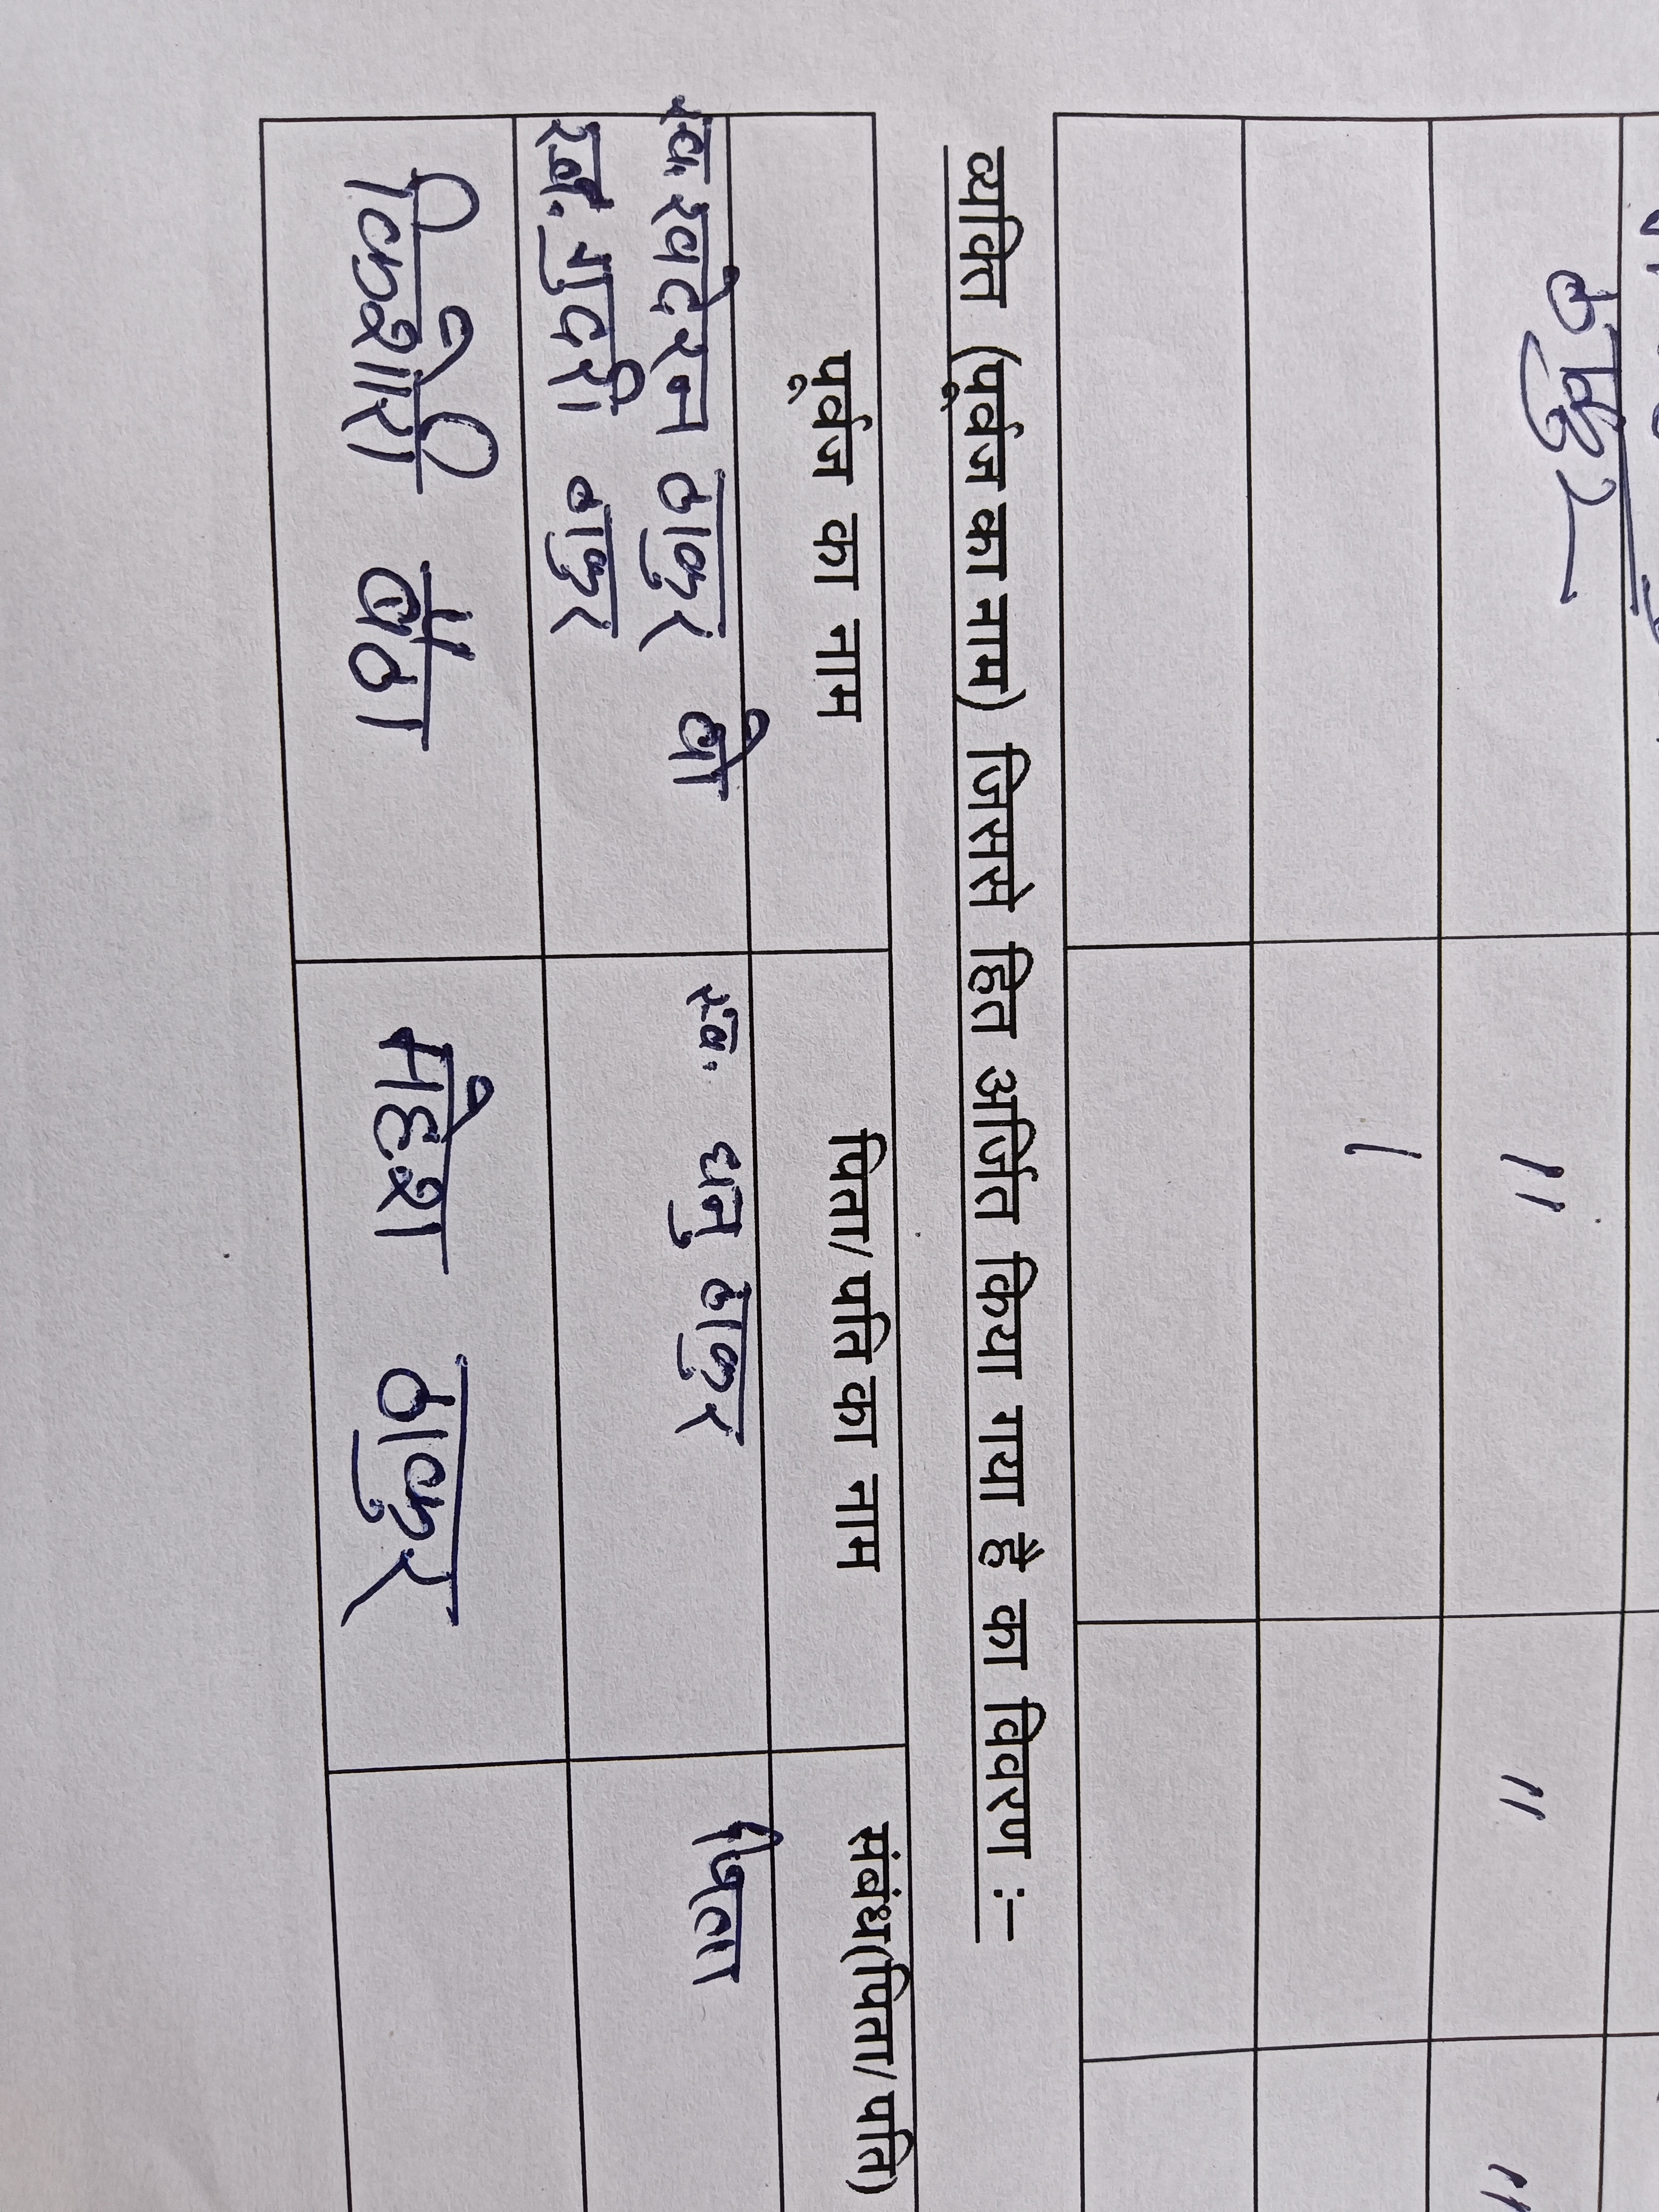 " " "
व्यक्ति (पूर्वज का नाम) जिससे हित अर्जित किया गया है का विवरण :–
पूर्वज का नाम पिता/पति का नाम संबंध(पिता/पति)
स्व. ठाकुर वो स्व. धनु ठाकुर पिता
स्व. ठाकुर
किशोरी बैठा महेश ठाकुर